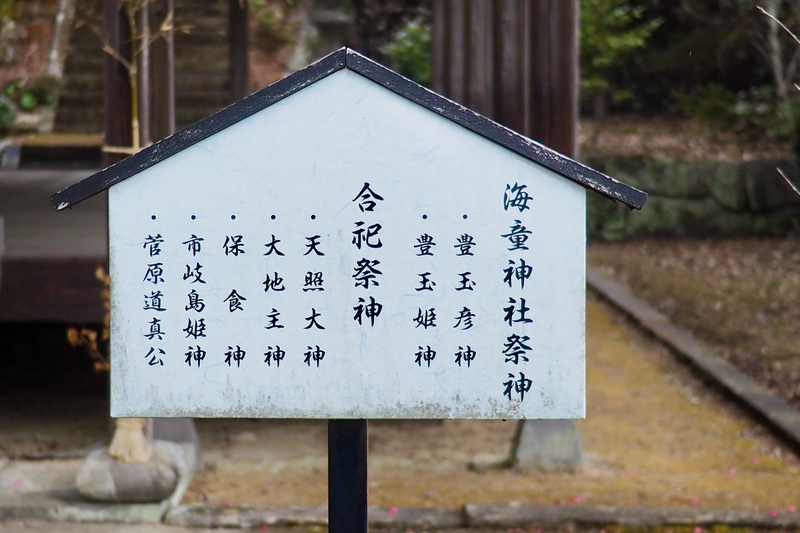 海童神社祭神
・豊玉彦神
・豊玉姫神
合祀祭神
・天照大神
・大地主神
・保食神
・市岐島姫神
・菅原道真公